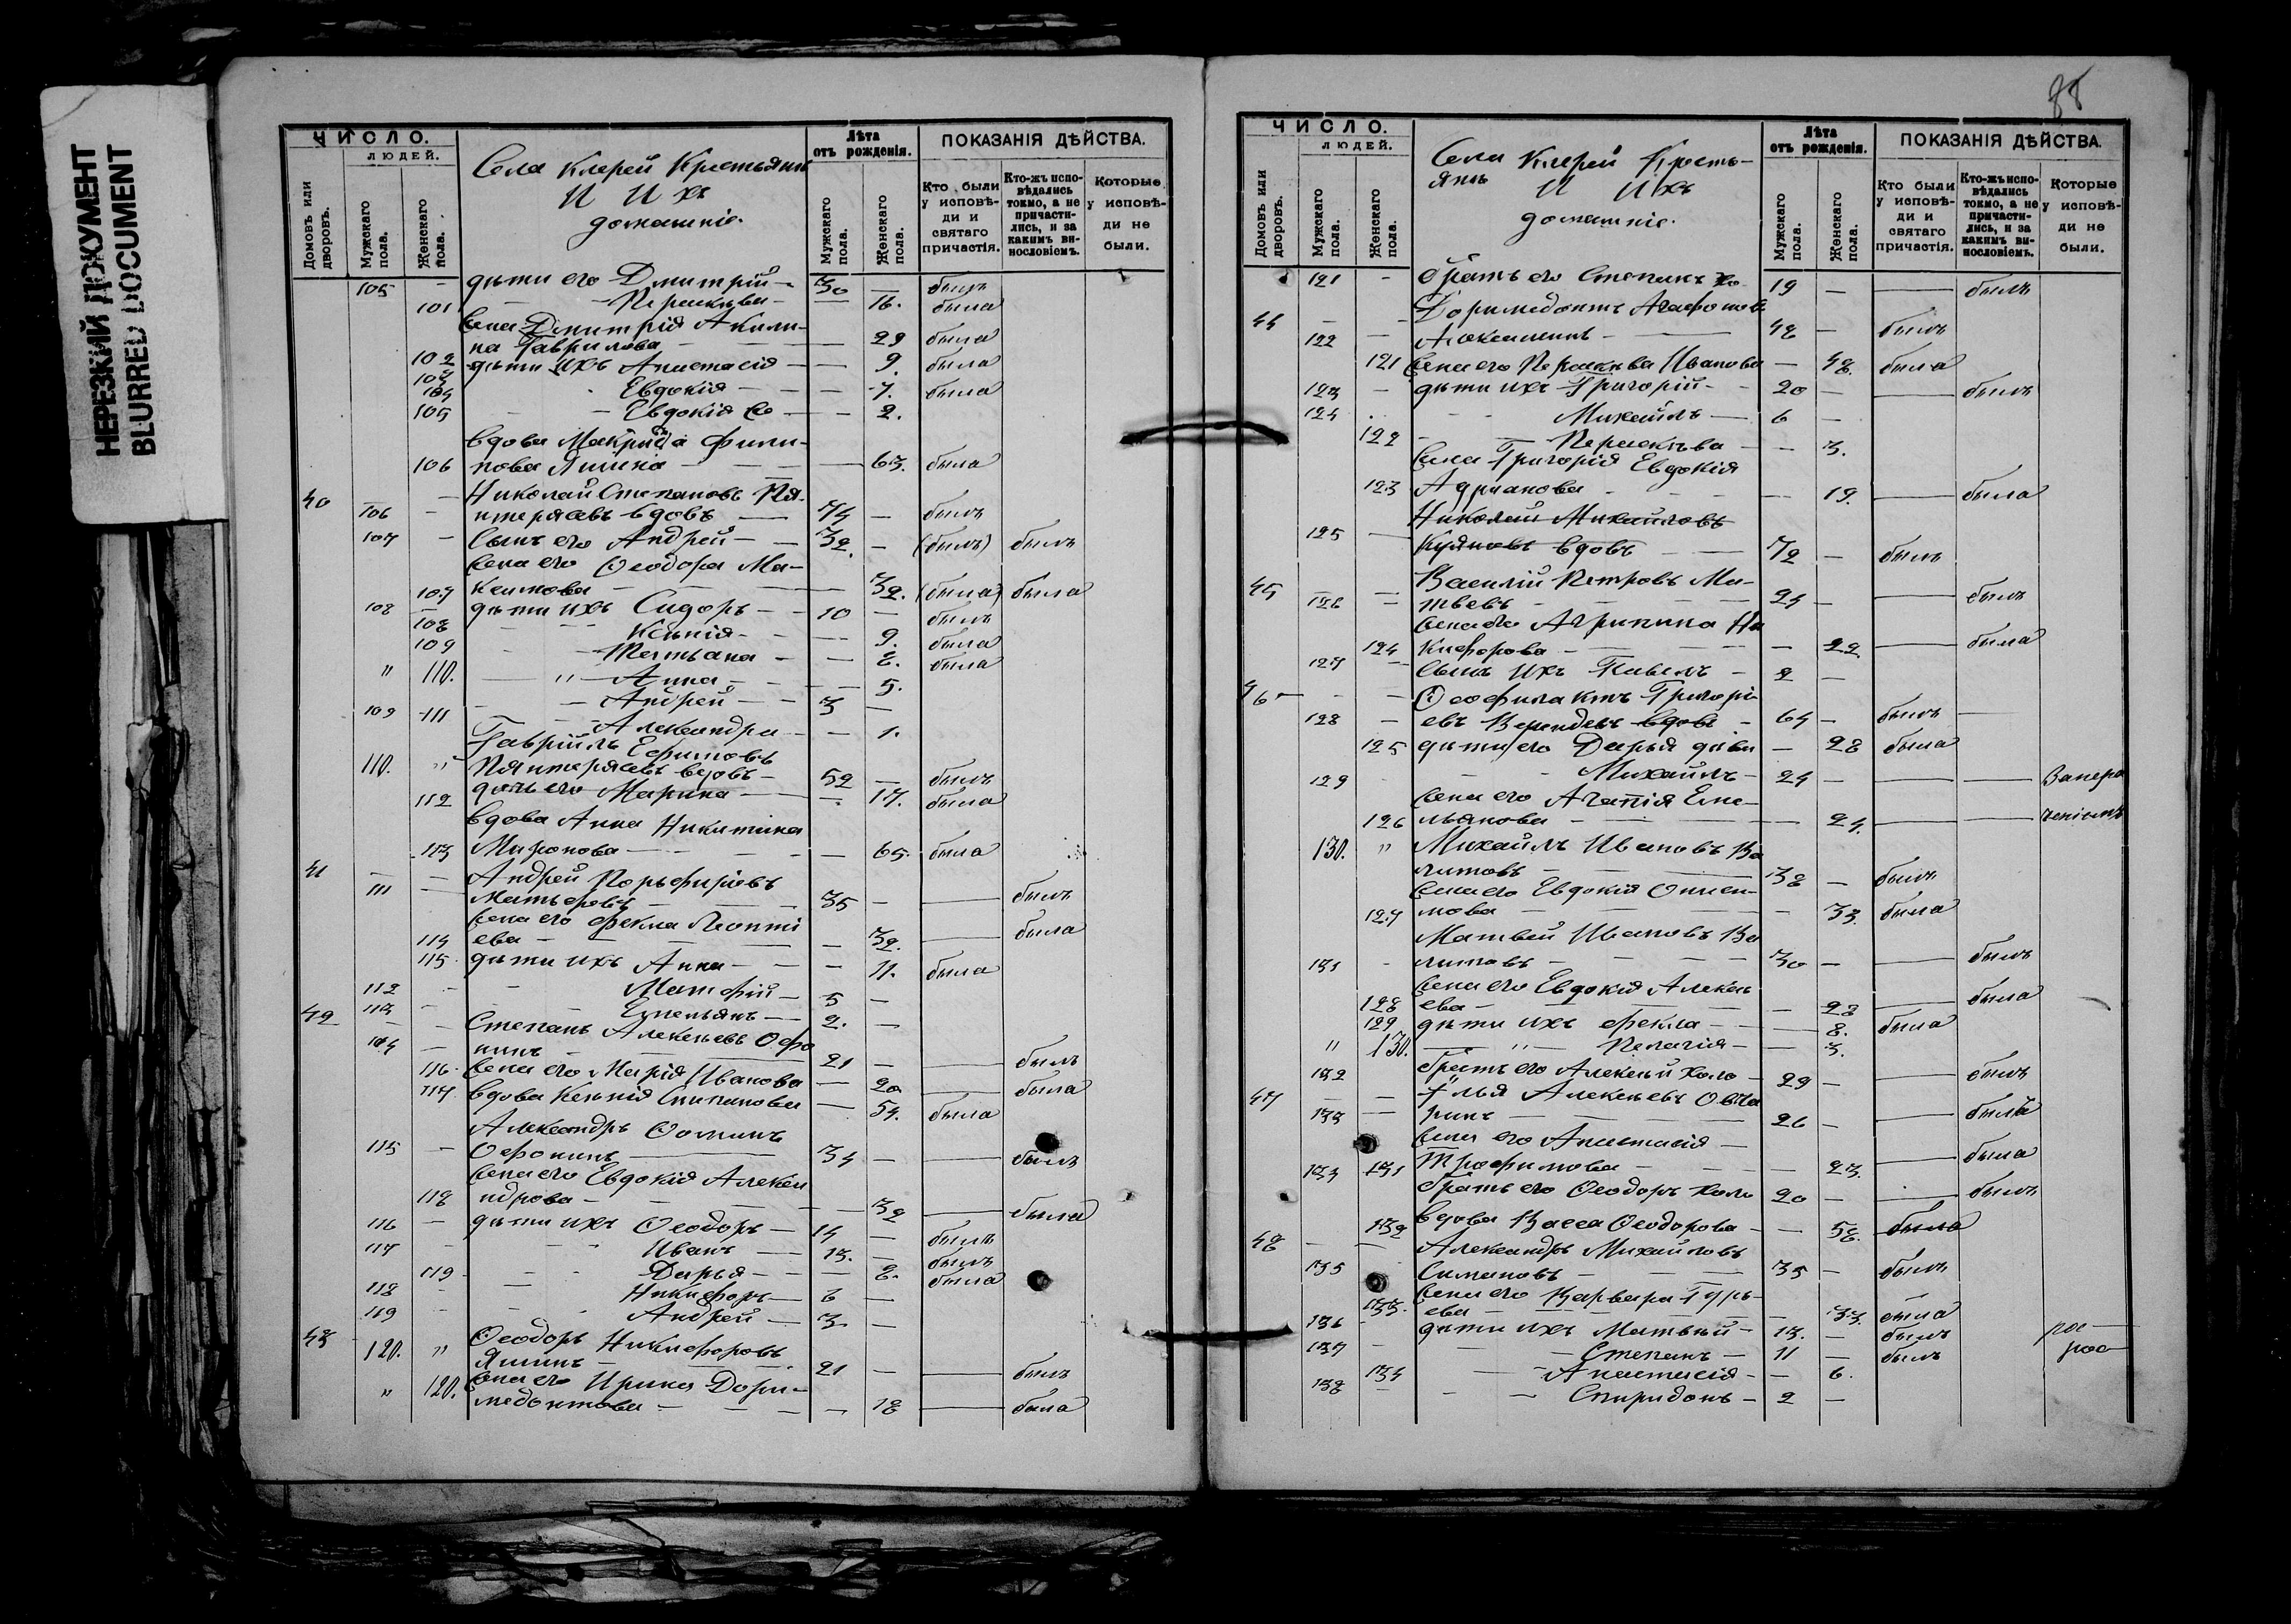 НЕРЕЗКИЙ ДОКУМЕНТ
BLURRED DOCUMENT
ЧИСЛО.
ЛЮДЕЙ.
Домовъ или дворовъ.
Мужскаго пола.
Женскаго пола.
Села Клерей Крестьянъ
И Ихъ
домашніе.
Лѣта отъ рожденія.
Мужскаго пола.
Женскаго пола.
ПОКАЗАНІЯ ДѢЙСТВА.
Кто были у исповѣди и святаго причастія.
Кто-жъ исповѣдались токмо, а не причастились, и за какимъ винословіемъ.
Которые у исповѣди не были.
105 - дѣти его Дмитрій - 30 — былъ
101 - Параскѣва - — 16. была
Жена Дмитрія Акили-
102 на Гаврилова — 29 была
103 дѣти ихъ Анастасія — 9. была
104 - Евдокія — 7. была
105 - Евдокія — 2.
вдова Макрида Фили-
106 пова Яшина — 63. была
40 — Николай Степановъ Пя-
106 - терясвъ вдовъ — 74 — былъ
107 - Сынъ его Андрей — 32. — (былъ) былъ
Жена его Ѳеодора Ма-
107 ксимова — 32. (была) была
108 — дѣти ихъ Сидоръ — 10 — былъ
108 - Ксѣнія — 9. была
109 - Татьяна — 8. была
" 110. — " — Анна — 5.
109 - Андрей — 3 —
111 - Александра — 1.
Гавріилъ Ефимовъ
110. " Пянтерясвъ вдовъ — 52 — былъ
112 дочь его Марина — 17. была
вдова Анна Никитина
113 Миронова — 65. была
41 — — Андрей Порьфиріевъ
111 — 35 — — былъ
Жена его Фекла Леонті
114 ева — 32. — была
115 дѣти ихъ Анна — 11. была
112 - - Матфій — 5 —
113 - - Емельянъ — 2. —
42 — — Степанъ Алексѣевъ Офо
114 — нинъ — 21 — — былъ
116. Жена его Марія Иванова — 20 — была
117. вдова Ксѣнія Степанова — 54. была
Александръ Ѳоминъ
115 — Офонинъ — 34 — — былъ
Жена его Евдокія Алексан
118 ндрова — 32 — была
116 — дѣти ихъ Ѳеодоръ — 14 — былъ
117 - Иванъ — 13. — былъ
119 - - Дарья — 8. была
118 - Никифоръ — 6 —
119 - Андрей — 3 —
43 Ѳеодоръ Никифоровъ
120. " Яшинъ — 21 — — былъ
Жена его Ирина Дори-
" 120. медонтова — 18 — была
88
ЧИСЛО.
ЛЮДЕЙ.
Домовъ или дворовъ.
Мужскаго пола.
Женскаго пола.
Села Клерей Кресть-
янъ И Ихъ
домашніе.
Лѣта отъ рожденія.
Мужскаго пола.
Женскаго пола.
ПОКАЗАНІЯ ДѢЙСТВА.
Кто были у исповѣди и святаго причастія.
Кто-жъ исповѣдались токмо, а не причастились, и за какимъ винословіемъ.
Которые у исповѣди не были.
121 - братъ его Степанъ хо. 19 — — былъ
44 — — Доримедонтъ Агафоновъ
122 — 48 — былъ
121 Жена его Параскѣва Иванова — 48. была
123 — дѣти ихъ Григорій — 20 — — былъ
124 - - Михаилъ — 6 —
122 - — Параскѣва — 3.
Жена Григорія Евдокія
123 Адрианова — 19. — была
Николай Михайловъ
125 — вдовъ — 72 — былъ
45 — — Василій Петровъ Ма-
126 — твеевъ — 24 — — былъ
Жена его Агрипина Ни
124 кифорова — 22 — была
127 — Сынъ ихъ Павелъ — 2 —
46 — — Ѳеофилактъ Григорі-
128 — евъ вдовъ — 64 — былъ —
125 дѣти его Дарья дѣви — 28 была
129 - Михаилъ — 24 — — — Запера
Жена его Агапія Еме-
126 льянова — 24. — — ченіемъ
130. " Михаилъ Ивановъ Ва
литовъ — 38 — былъ
Жена его Евдокія
127 мова — 33. была
Матвей Ивановъ Ва
131 - литовъ — 30 — — былъ
Жена его Евдокія Алексѣ
128 ева — 28 — была
129 дѣти ихъ Фекла — 8. была
" 130. — " — Пелагія — 3.
132 братъ его Алексѣй холо — 29 — — былъ
47 — — Илья Алексѣевъ Овча
133 — ринъ — 26 — — былъ
Жена его Анастасія —
134 131 Трофимова — 23. — была
братъ его Ѳеодоръ холо 20 — — былъ
132 вдова Васса Ѳеодорова — 58. была
48 — — Александръ Михайловъ
135 Симановъ — 35 — былъ
Жена его Варвара Гурь-
133. ева — 33. была
136 - дѣти ихъ Матвѣй — 13. — былъ рос
137 — - Степанъ — 11 — былъ рос
134 — Анастасія — 6.
138 — - - Спиридонъ — 2 —